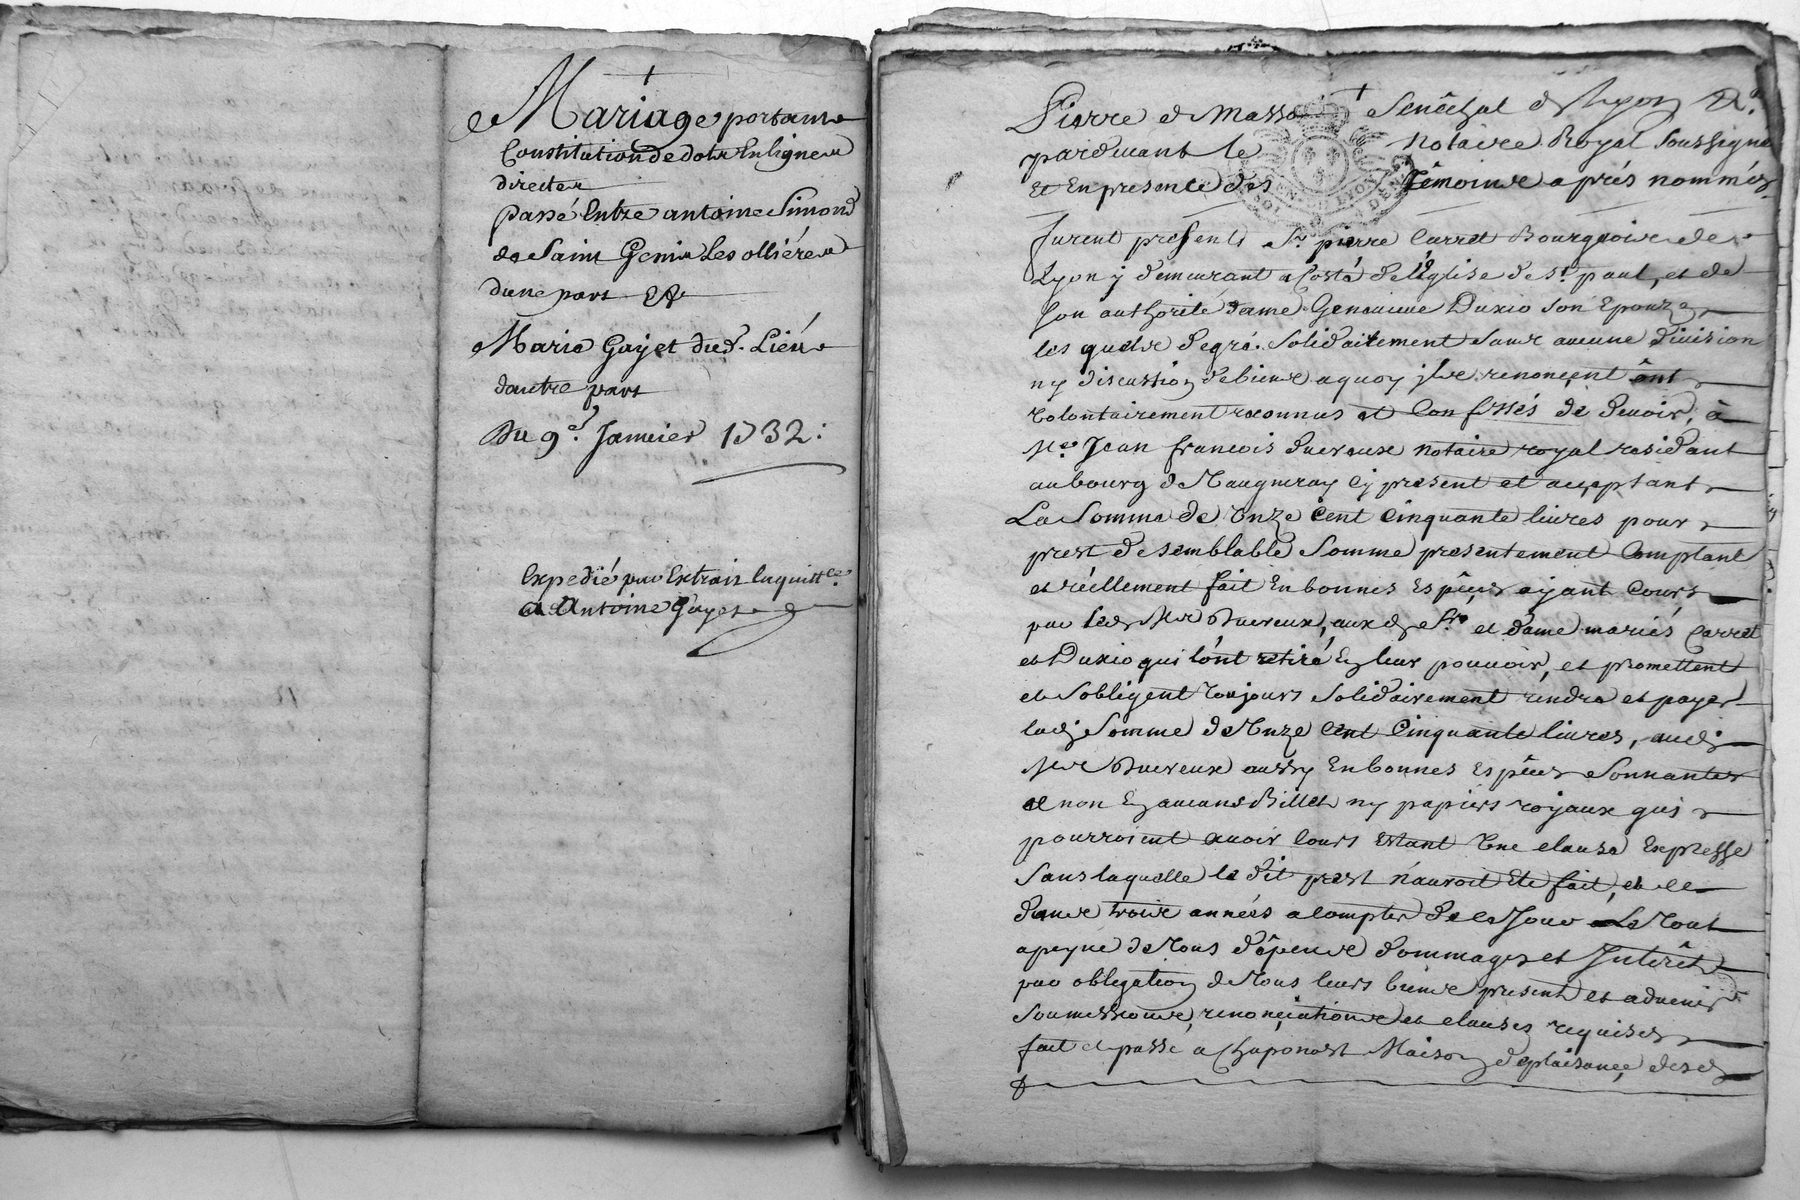 Mariage portant
Constitution de dote En ligne
directe
passé Entre antoine Simond
de Saint Genis Les ollières
dune part Et
Marie Gayet dud. Lieu
dautre part
Du 9e. Janvier 1732:
Expedié par Extrait la quitt.ce
a Antoine Gayet
Pierre de Masso Senéchal de Lyon
pardevant le Notaire Royal soussigné
Et En presence des Témoins aprés nommés
furent presents Sr. pierre Carret Bourgeois de
Lyon y demeurant a Costé de l'Eglise de St. paul, et de
son authorité dame Genevieve Duxio son Epouze
les quels de gré solidairement sans aucune division
ny discussion de biens a quoy ils renonçent ont
volontairement reconnus et Confessés de devoir, à
Me. Jean francois duvreux notaire royal residant
au bourg de Vaugneray Cy present et acceptant
La Somme de Onze Cent Cinquante livres pour
prest de semblable Somme presentement Comptant
et réellement fait En bonnes Espèces ayant Cours
par led. Me. Duvreux, aux d. Srs. et dame mariés Carret
et Duxio qui l'ont retiré En leur pouvoir, et promettent
et s'obligent toujours solidairement rendre et payer
lad. Somme de Onze Cent Cinquante livres, aud.
Me Duvreux aussy En bonnes Espèces Sonnantes
et non En aucuns Billets ny papiers royaux qui
pourroient avoir Cours Estant Une clause Expresse
Sans laquelle le dit prest n'auroit Eté fait, et ce
dans trois années a Compter de ce Jour Le Tout
a peyne de Tous dépens dommages et Intérêts
par obligation de Tous leurs biens present et advenir
Soumissions, renonçiations et clauses requises
fait et passé a Chaponost Maison de plaisance, desd.